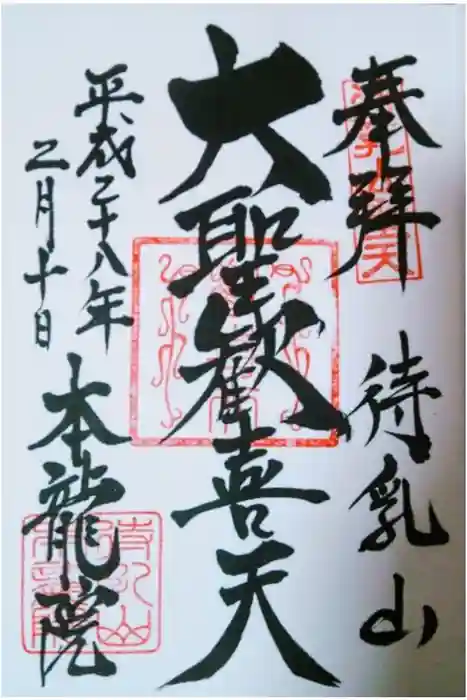 奉拝 待乳山
大聖歓喜天
平成二十八年
二月十日
本龍院